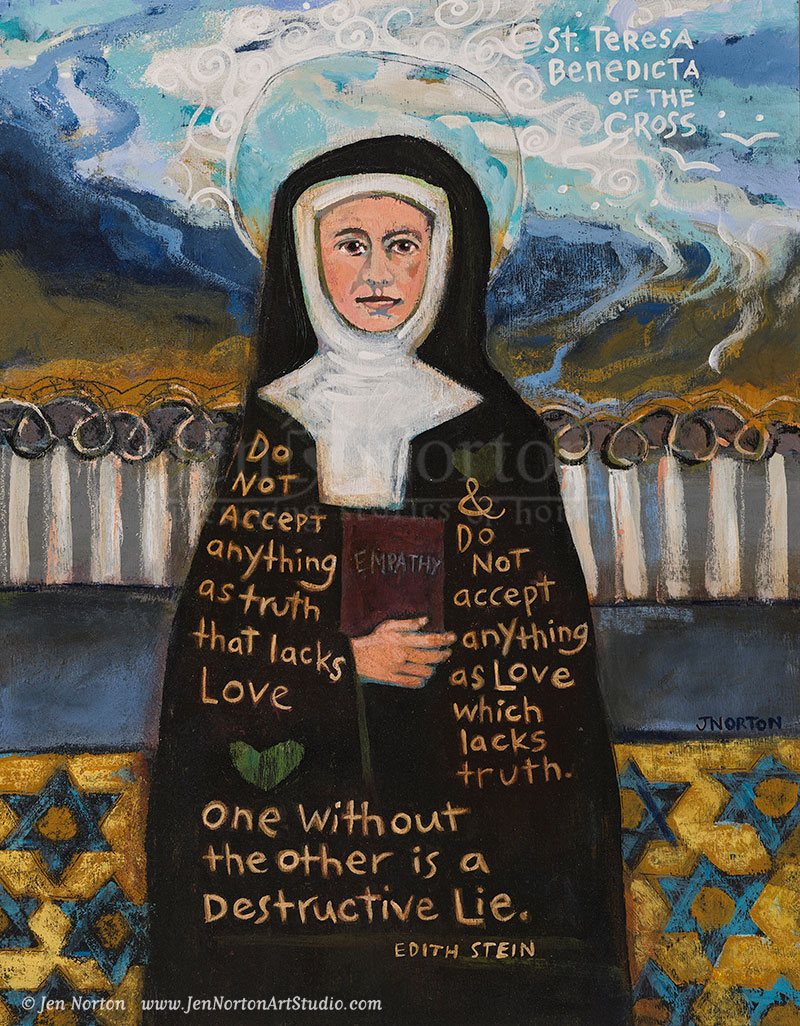 St. Teresa
Benedicta
of the
Cross
Do
Not
Accept
anything
as truth
that lacks
Love
EMPATHY
&
Do
Not
accept
anything
as Love
which
lacks
truth.
One without
the other is a
Destructive Lie.
EDITH STEIN
JNORTON
© Jen Norton www.JenNortonArtStudio.com